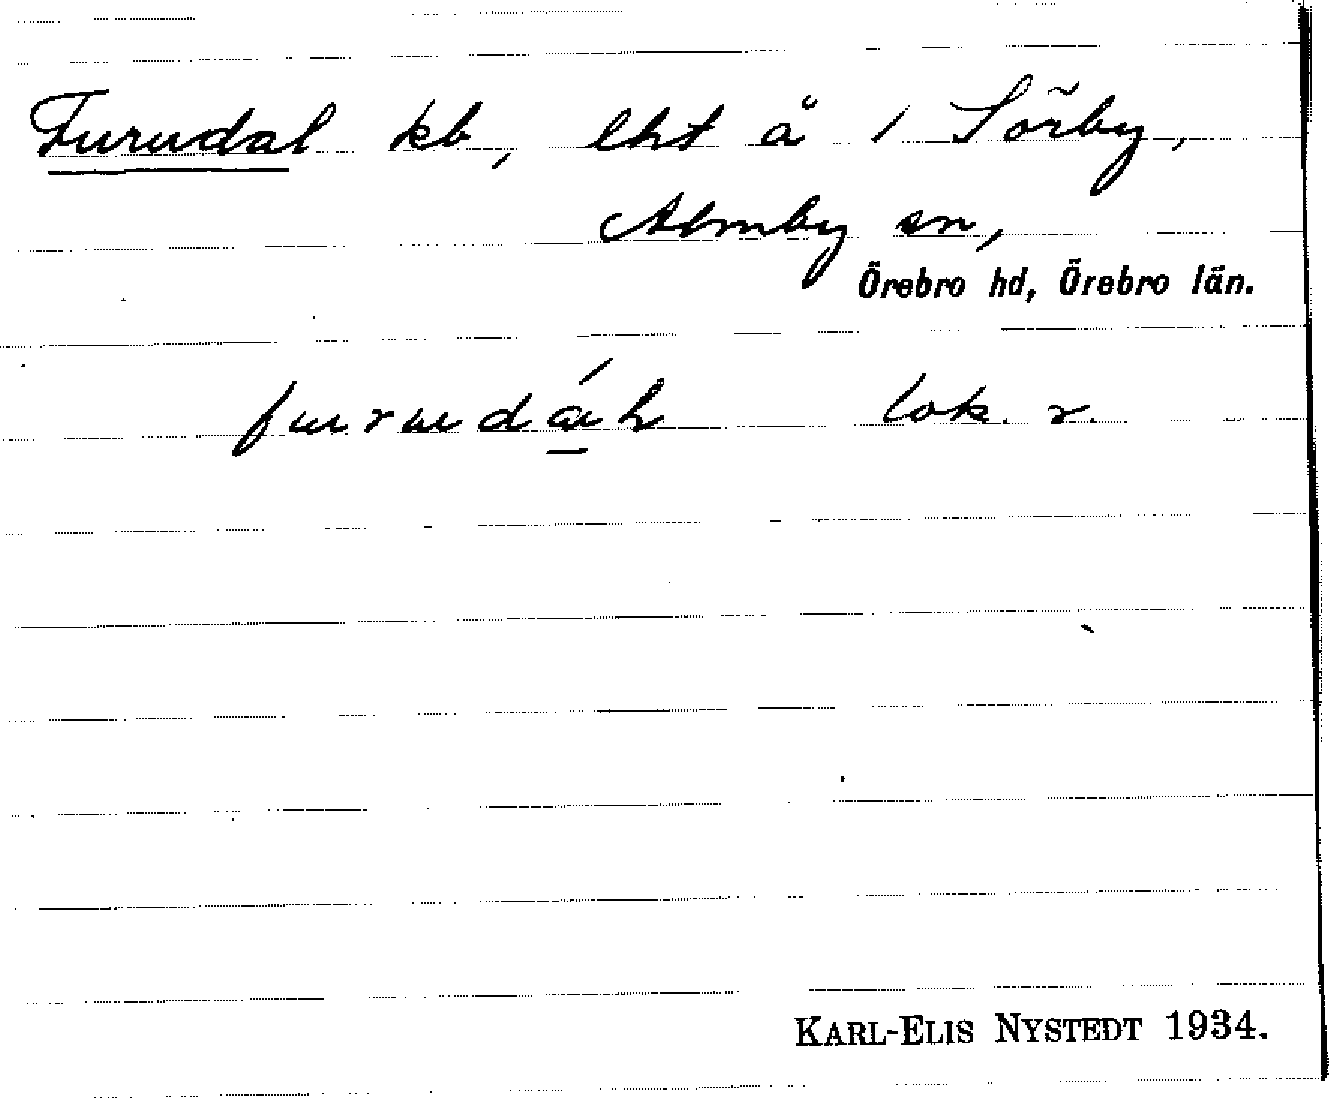 Furudal kb, lht å 1 Sörby,
Almby sn,
Örebro hd, Örebro län.
lok. r.
KARL-ELIS NYSTEDT 1934.